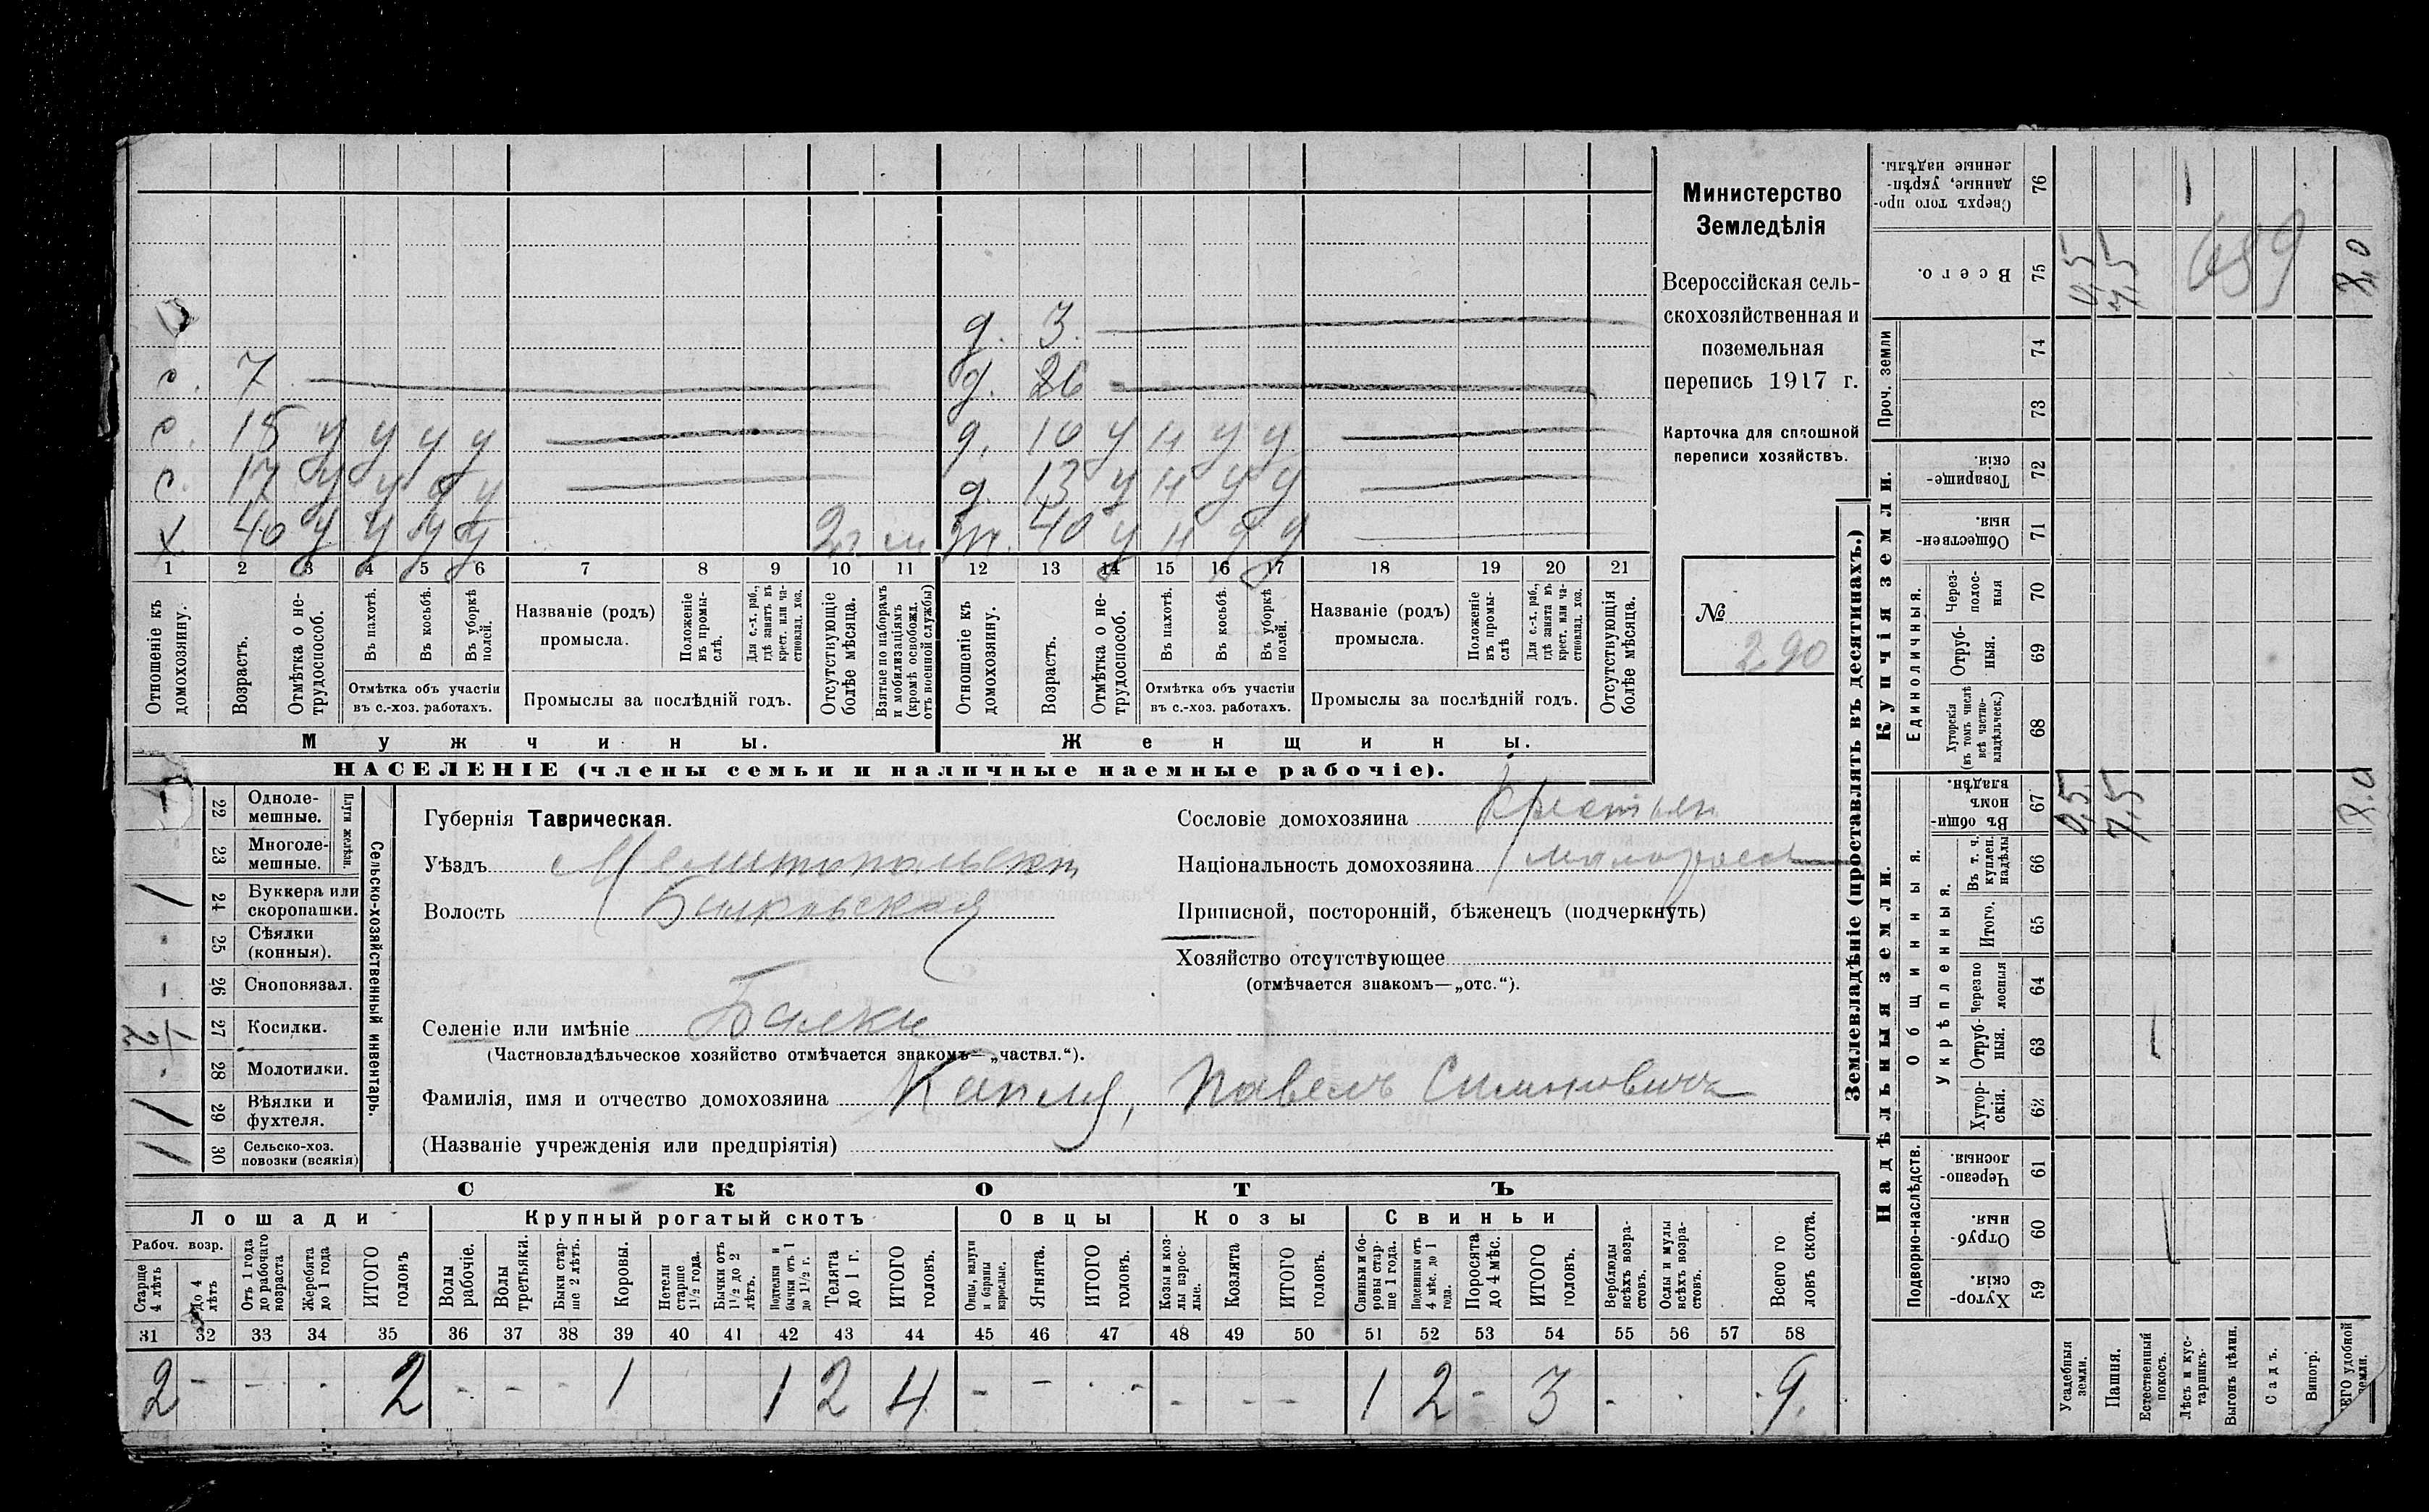 Министерство
Земледѣлія
Всероссійская сель-
скохозяйственная и
поземельная
перепись 1917 г.
Карточка для сплошной
переписи хозяйствъ.
№
290
д. 3.
с. 7
д. 26
с. 15 у у у у
д. 10 у н у у
с. 17 у у у у
д. 13 у н у у
х. 40 у у у у
40 у н у у
1 2 3 4 5 6 7 8 9 10 11 12 13 14 15 16 17 18 19 20 21
Отношеніе къ домохозяину.
Возрастъ.
Отмѣтка о не-трудоспособ.
Въ пахотѣ.
Въ косьбѣ.
Въ уборкѣ полей.
Отмѣтка объ участіи
въ с.-хоз. работахъ.
Названіе (родъ)
промысла.
Положеніе въ промы-слѣ.
Для с.-х. раб., гдѣ занятъ въ крест. или ча-стновлад. хоз.
Промыслы за послѣдній годъ.
Отсутствующіе болѣе мѣсяца.
Взятые по наборамъ и мобилизаціямъ (кромѣ освобожд. отъ военной службы)
Отношеніе къ домохозяину.
Возрастъ.
Отмѣтка о не-трудоспособ.
Въ пахотѣ.
Въ косьбѣ.
Въ уборкѣ полей.
Отмѣтка объ участіи
въ с.-хоз. работахъ.
Названіе (родъ)
промысла.
Положеніе въ промы-слѣ
Для с.-х. раб., гдѣ занята въ крест. или ча-стновлад. хоз.
Промыслы за послѣдній годъ.
Отсутствующія болѣе мѣсяца.
Мужчины.
Женщины.
НАСЕЛЕНІЕ (члены семьи и наличные наемные рабочіе).
Сельско-хозяйственный инвентарь.
Плуги желѣзн.
22 Одноле-мешные.
23 Многоле-мешные.
24 Буккера или скоропашки. 1
25 Сѣялки (конныя).
26 Сноповязал. -
27 Косилки. 1/2
28 Молотилки.
29 Вѣялки и фухтеля. 1
30 Сельско-хоз. повозки (всякія) 1
Губернія Таврическая.
Уѣздъ Мелитопольскій
Волость Балковская
Селеніе или имѣніе Балки
(Частновладѣльческое хозяйство отмѣчается знакомъ—„частвл.“).
Фамилія, имя и отчество домохозяина Капля, Павелъ Симоновичъ
(Названіе учрежденія или предпріятія)
Сословіе домохозяина Крестьян
Національность домохозяина малоросс
Приписной, посторонній, бѣженецъ (подчеркнуть)
Хозяйство отсутствующее
(отмѣчается знакомъ—„отс.“).
СКОТЪ
Лошади
Крупный рогатый скотъ
Овцы
Козы
Свиньи
Рабоч. возр.
Старше 4 лѣтъ
до 4 лѣтъ
Отъ 1 года до рабочаго возраста
Жеребята до 1 года
ИТОГО головъ
Волы рабочіе.
Волы третьяки.
Быки стар-ше 2 лѣтъ.
Коровы.
Нетели старше 1½ года.
Бычки отъ 1½ до 2 лѣтъ.
Подтелки и бычки отъ 1 до 1½ г.
Телята до 1 г.
ИТОГО головъ.
Овцы, валухи и бараны взрослые.
Ягнята.
ИТОГО головъ.
Козы и коз-лы взрос-лые.
Козлята
ИТОГО головъ.
Свиньи и бо-ровы стар-ше 1 года.
Подсвинки отъ 4 мѣс. до 1 года.
Поросята до 4 мѣс.
ИТОГО головъ.
Верблюды всѣхъ возра-стовъ.
Ослы и мулы всѣхъ возра-стовъ.
Всего го-ловъ скота.
31 32 33 34 35 36 37 38 39 40 41 42 43 44 45 46 47 48 49 50 51 52 53 54 55 56 57 58
2 - - - 2 - - - 1 1 2 4 - - - - - - 1 2 - 3 - 9.
Землевладѣніе (проставлять въ десятинахъ.)
Надѣльныя земли.
Купчія земли.
Проч. земли
Подворно-наслѣдств.
Общинныя.
Укрѣпленныя.
Единоличныя.
76 Сверхъ того про-данные, укрѣп-ленные надѣлы.
75 Всего. 0,5 7,5 8,0
659
74
73
72 Товарище-скія.
71 Обществен-ныя.
70 Через-полос-ныя
69 Отруб-ныя.
68 Хуторскія (въ томъ числѣ всѣ частно-владѣльческ.)
67 Въ общи-номъ владѣн. 0,5 7,5 8.0
66 Въ т. ч. куплен. надѣлы
65 Итого.
64 Черезпо лосныя
63 Отруб-ныя.
62 Хутор-скія.
61 Черезпо-лосныя
60 Отруб-ныя.
59 Хутор-скія.
Усадебныя земли.
Пашня.
Естественный покосъ.
Лѣсъ и кус-тарникъ.
Выгонъ цѣлин.
Садъ.
Виногр.
ЕГО удобной земли.